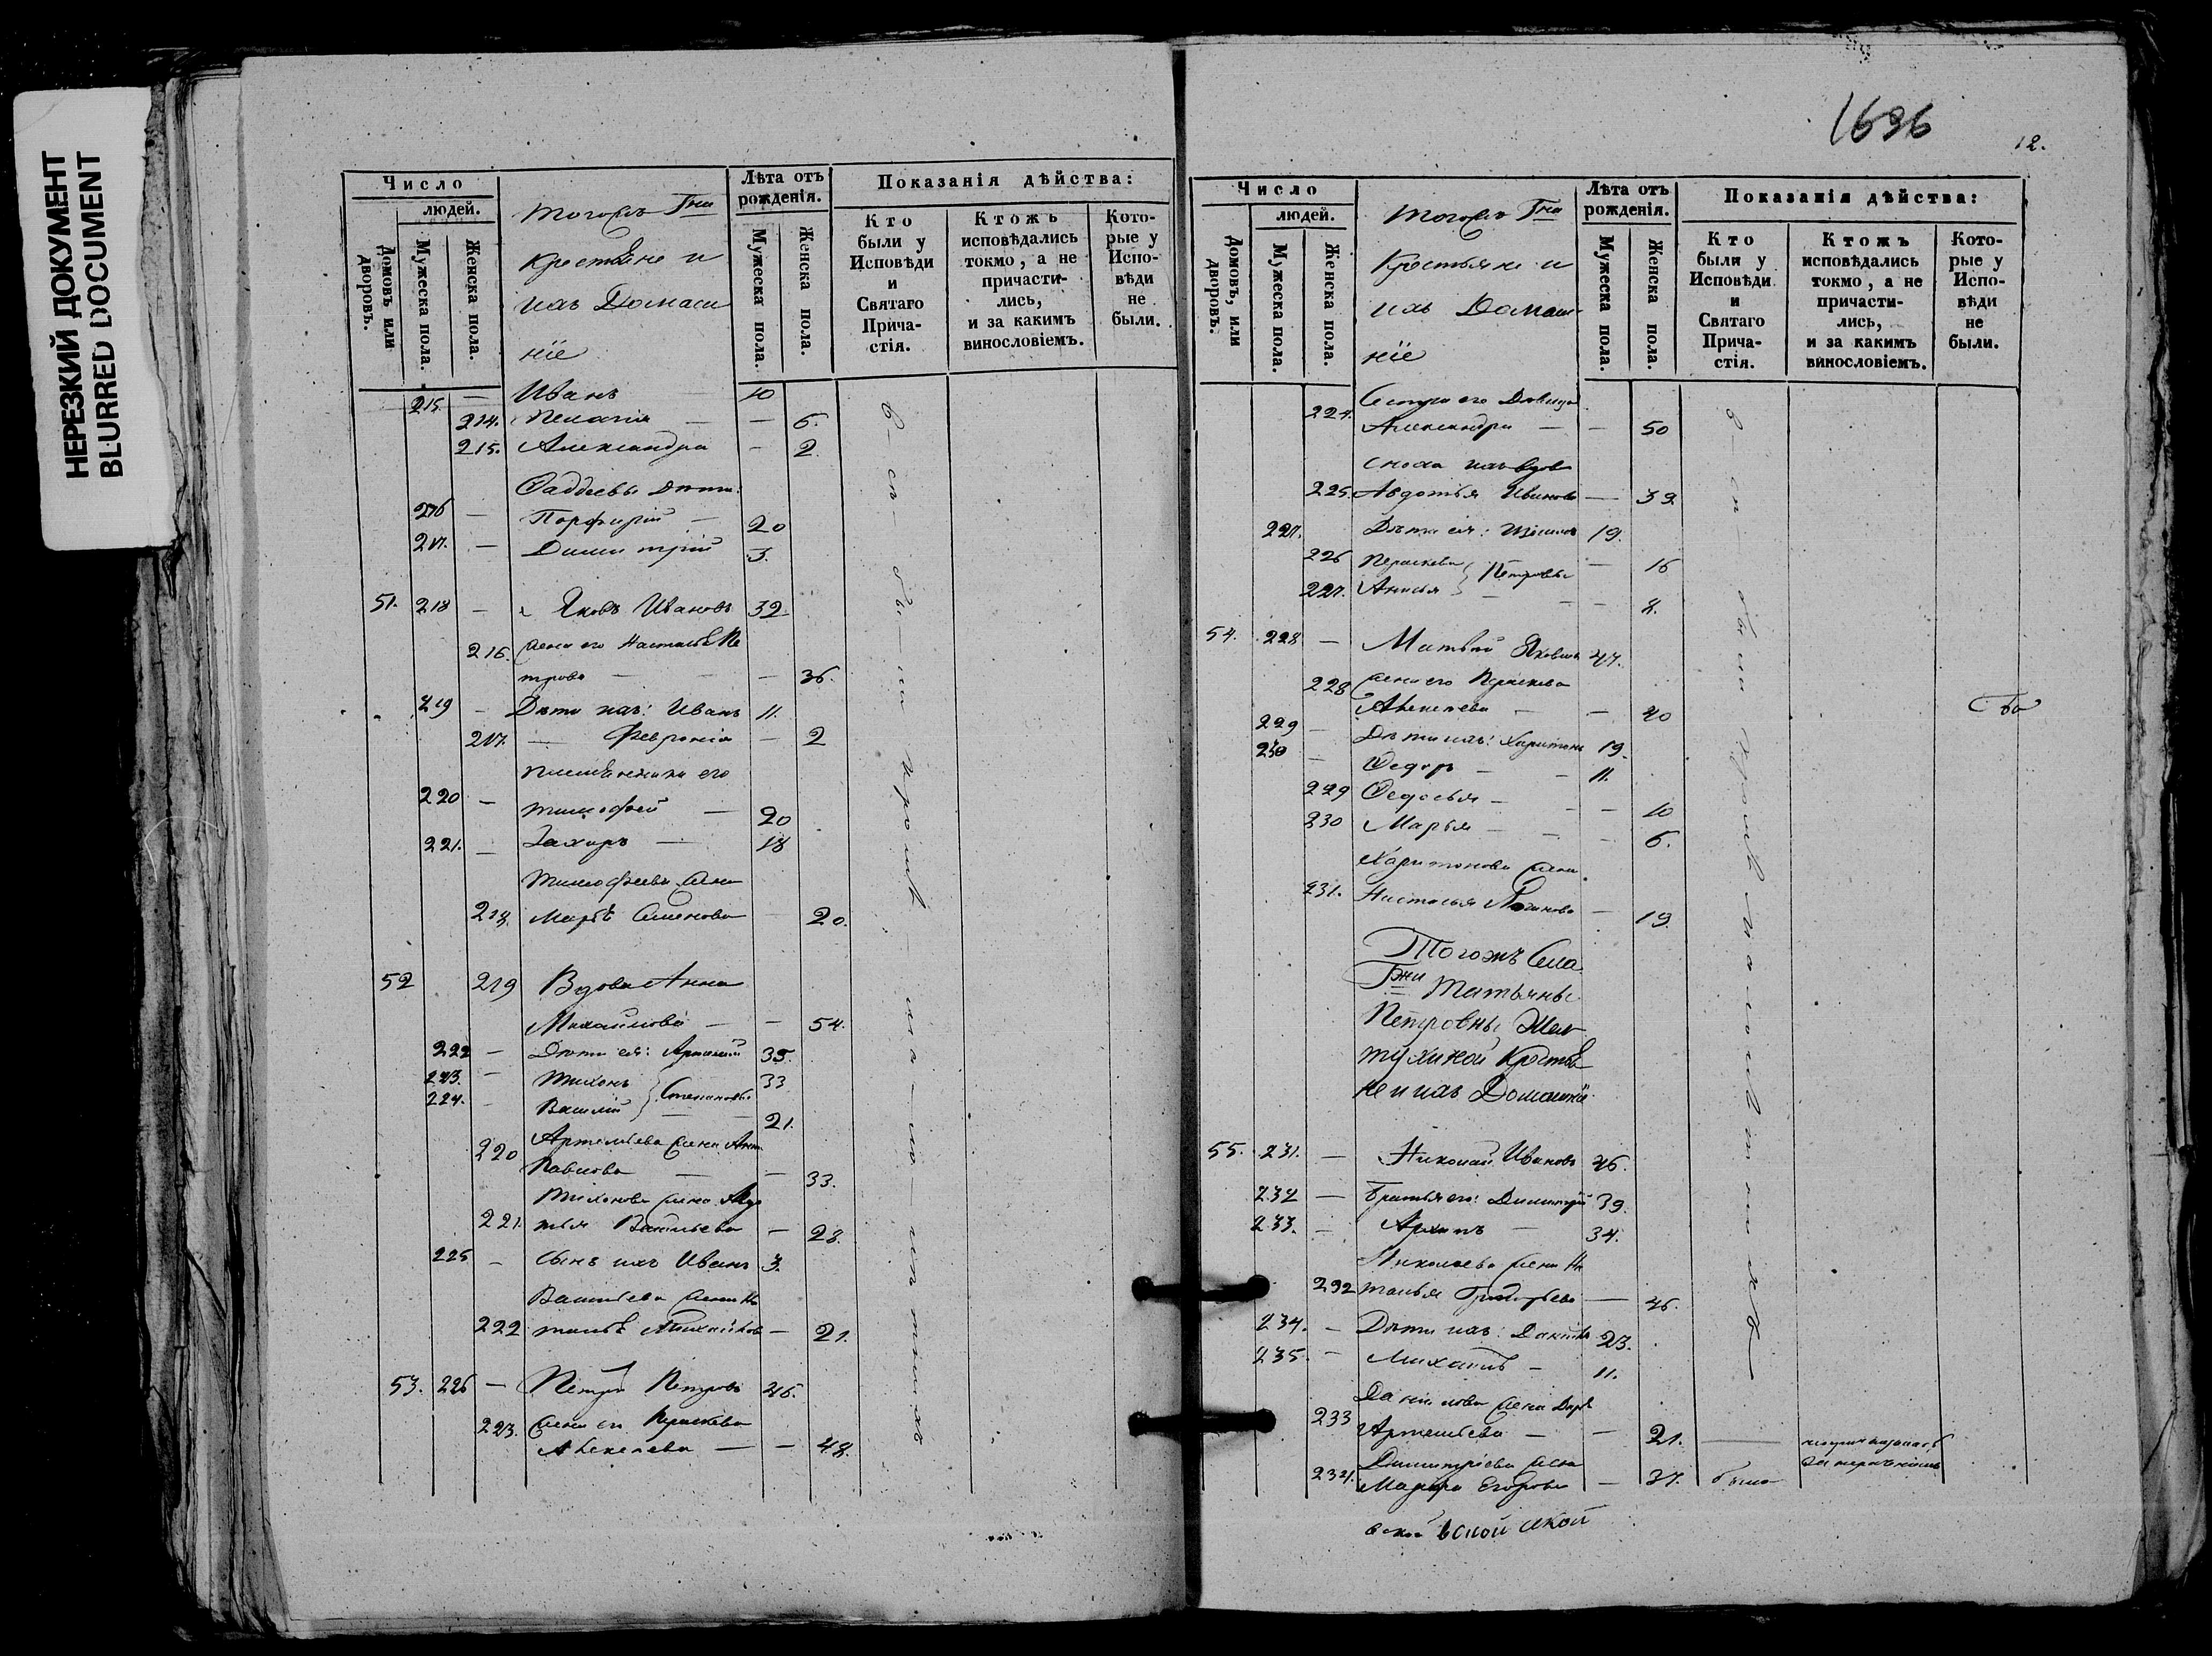 НЕРЕЗКИЙ ДОКУМЕНТ
BLURRED DOCUMENT
Число
людей.
Домовъ или дворовъ.
Мужеска пола.
Женска пола.
тогожъ Гна
крестьяне и
ихъ Домаш
нiе
Лѣта отъ рожденiя.
Мужеска пола.
Женска пола.
Показанiя дѣйства:
Кто были у Исповѣди и Святаго Прича-стiя.
Ктожъ исповѣдались токмо, а не причасти-лись, и за какимъ винословiемъ.
Кото-рые у Испо-вѣди не были.
215. — Иванъ — 10
214. Пелагiя — — 6.
215. Александра — 2
Фаддеевы дѣти:
216 — Порфирiй — 20
217. — Димитрiй 3.
51. 218 — Яковъ Ивановъ 32
216. жена его Настасья Пе
трова — — 36.
219 — Дѣти ихъ: Иванъ 11.
217. — Февронiя — 2
племянники его
220 — Тимофей — 20
221. — Захаръ — 18
Тимофеева жена
218. Марья Семенова — 20.
52 219 Вдова Анна
Михайлова — — 54.
222 — Дѣти ея: Артемiй 35.
223. — Тихонъ 33
224. — Василiй } Степановы — 21.
220 Артемьева жена Анна
Павлова — — 33.
Тихонова жена Авдо
221. тья Васильева — 28.
225 — Сынъ ихъ Иванъ 3.
Васильева жена На
222 талья Михайлова — 21.
53. 226 — Петръ Петровъ 46.
223. жена его Прасковья
Алексеева — — 48.
1696
12.
Число
людей.
Домовъ, или дворовъ.
Мужеска пола.
Женска пола.
тогожъ Гна
крестьяне и
ихъ Домаш-
нiе
Лѣта отъ рожденiя.
Мужеска пола.
Женска пола.
Показанiя дѣйства:
Кто были у Исповѣди и Святаго Прича-стiя.
Ктожъ исповѣдались токмо, а не причасти-лись, и за какимъ винословiемъ.
Кото-рые у Испо-вѣди не были.
224. Сестра его Девица
Александра — — 50
сноха ихъ вдова
225. Авдотья Иванова — 39
227. Дѣти ея: 19.
226 Прасковья } Петровы — 16
227. Анисья — — 8.
54. 228 — Матвей Яковлевъ 47.
228 жена его Прасковья
Алексеева — — 40
229 — Дѣти ихъ: Харитонъ 19.
230 — Федоръ — — 11.
229 Федосья — — — 10
230 Марья — — — 6.
Харитонова жена
231. Настасья — 19.
Тогожъ Села
Гжи Татьяны
Петровны Жел
тухиной Крестья
не и ихъ Домашнiе
55. 231. — Николай Ивановъ 46.
232 — Братья его: Димитрiй 39.
233. — Архипъ — 34.
Николаева жена На
232 талья Григорьева — 46.
234. — Дѣти ихъ: Данiилъ 23.
235. — Михаилъ — 11.
Данiилова жена Дарья
233 Артемьева — — 21. —
Димитрiева жена
234. Марфа Егорова — 37. была
вской вской ской